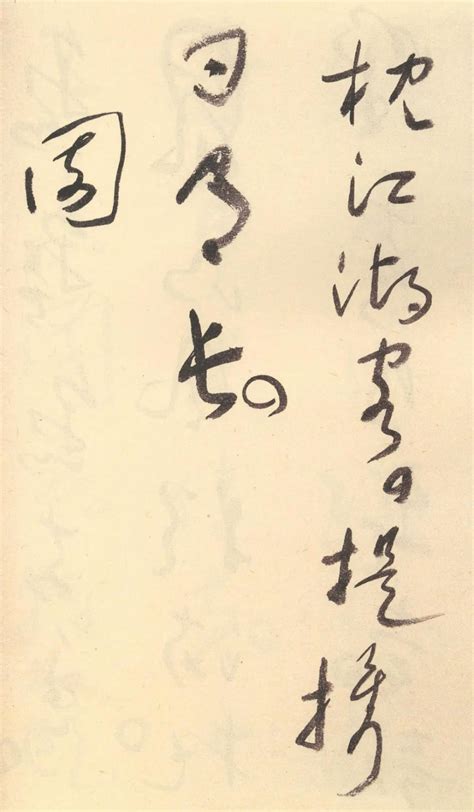 枕江湖客，提携
日月长。
園